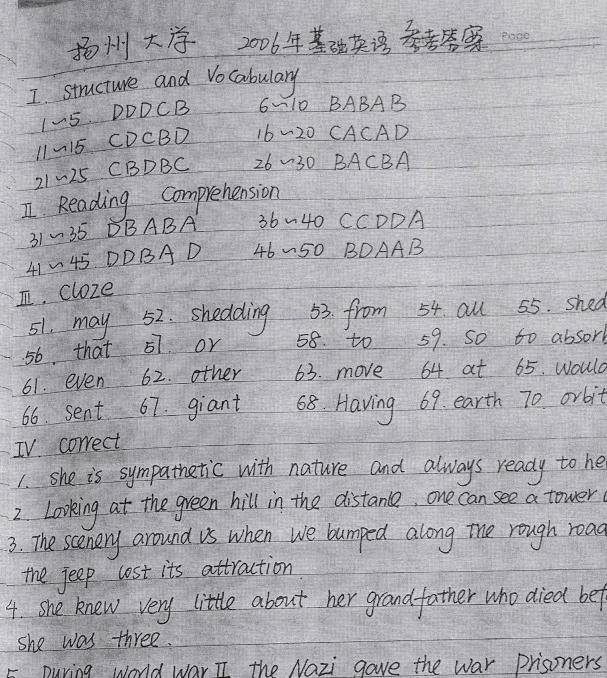 扬州大学 2006年基础英语 参考答案 Page
I. Structure and Vocabulary
1~5. DDDCB 6~10 BABAB
11~15 CDCBD 16~20 CACAD
21~25 CBDBC 26~30 BACBA
II Reading Comprehension
31~35 DBABA 36~40 CCDDA
41~45 DDBAD 46~50 BDAAB
III. Cloze
51. may 52. shedding 53. from 54. all 55. shed
56. that 57 or 58. to 59. so 60 absorb
61. even 62. other 63. move 64 at 65. would
66. sent 67. giant 68. Having 69. earth 70. orbit
IV correct
1. she is sympathetic with nature and always ready to he
2. Looking at the green hill in the distante, one can see a tower
3. The scenery around us when we bumped along the rough road
the jeep lost its attraction.
4. she knew very little about her grandfather who died bef
she was three.
5. During World War II the Nazi gave the war prisoners